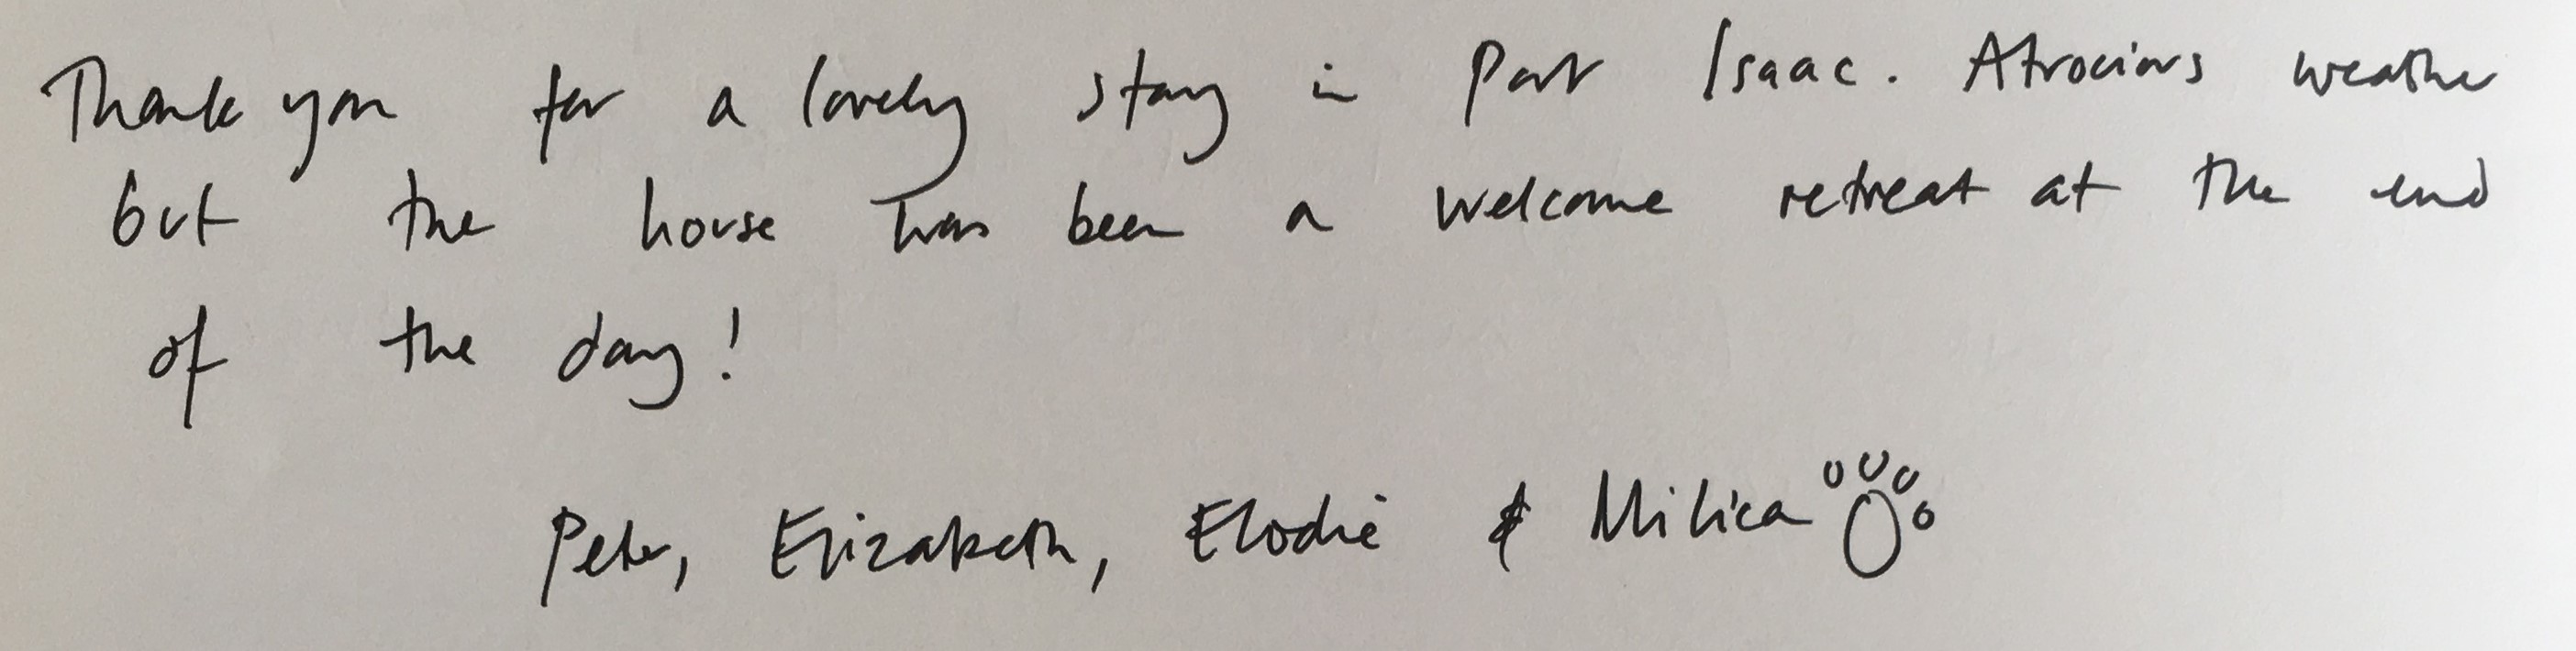 Thank you for a lovely stay in Port Isaac. Atrocious weather
but the house has been a welcome retreat at the end
of the day!
Peter, Elizabeth, Elodie & Milica